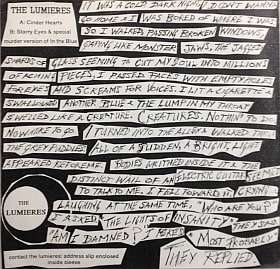 THE LUMIERES
A: Cinder Hearts
B: Starry Eyes & special
murder version of In the Blue
IT WAS A COLD DARK NIGHT I DIDN'T WANNA
GO HOME & I WAS BORED OF WHERE I WAS
SO I WALKED PASSING BROKEN WINDOWS,
GAPING LIKE MONSTER JAWS, THE JAGGED
SHARDS OF GLASS SEEMING TO CUT MY SOUL INTO MILLIONS
OF ACHING PIECES, I PASSED FACES WITH EMPTY HOLES
FOR EYES AND SCREAMS FOR VOICES. I LIT A CIGARETTE &
SWALLOWED ANOTHER BLUE & THE LUMP IN MY THROAT
SWELLED LIKE A CREATURE. CREATURES. NOTHING TO DO,
NOWHERE TO GO. I TURNED INTO THE ALLEY & WALKED THRU
THE GREY PUDDLES. ALL OF A SUDDEN, A BRIGHT LIGHT
APPEARED BEFORE ME. BODIES WRITHED INSIDE IT & THE
DISTINCT WAIL OF AN ELECTRIC GUITAR SEEMED
TO TALK TO ME. I FELL FORWARD IT CRYING
LAUGHING AT THE SAME TIME, "WHO ARE YOU?"
I ASKED. THE LIGHTS OF INSANITY THEY SAID
"AM I DAMNED?" I ASKED "MOST PROBABLY"
THEY REPLIED
THE
LUMIERES
contact the lumieres: address slip enclosed
inside sleeve